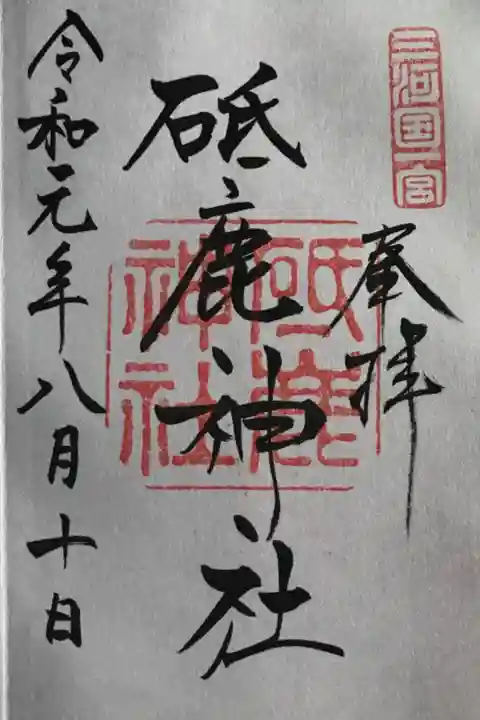 三河国一宮
奉拝
砥鹿神社
砥鹿神社
令和元年八月十日